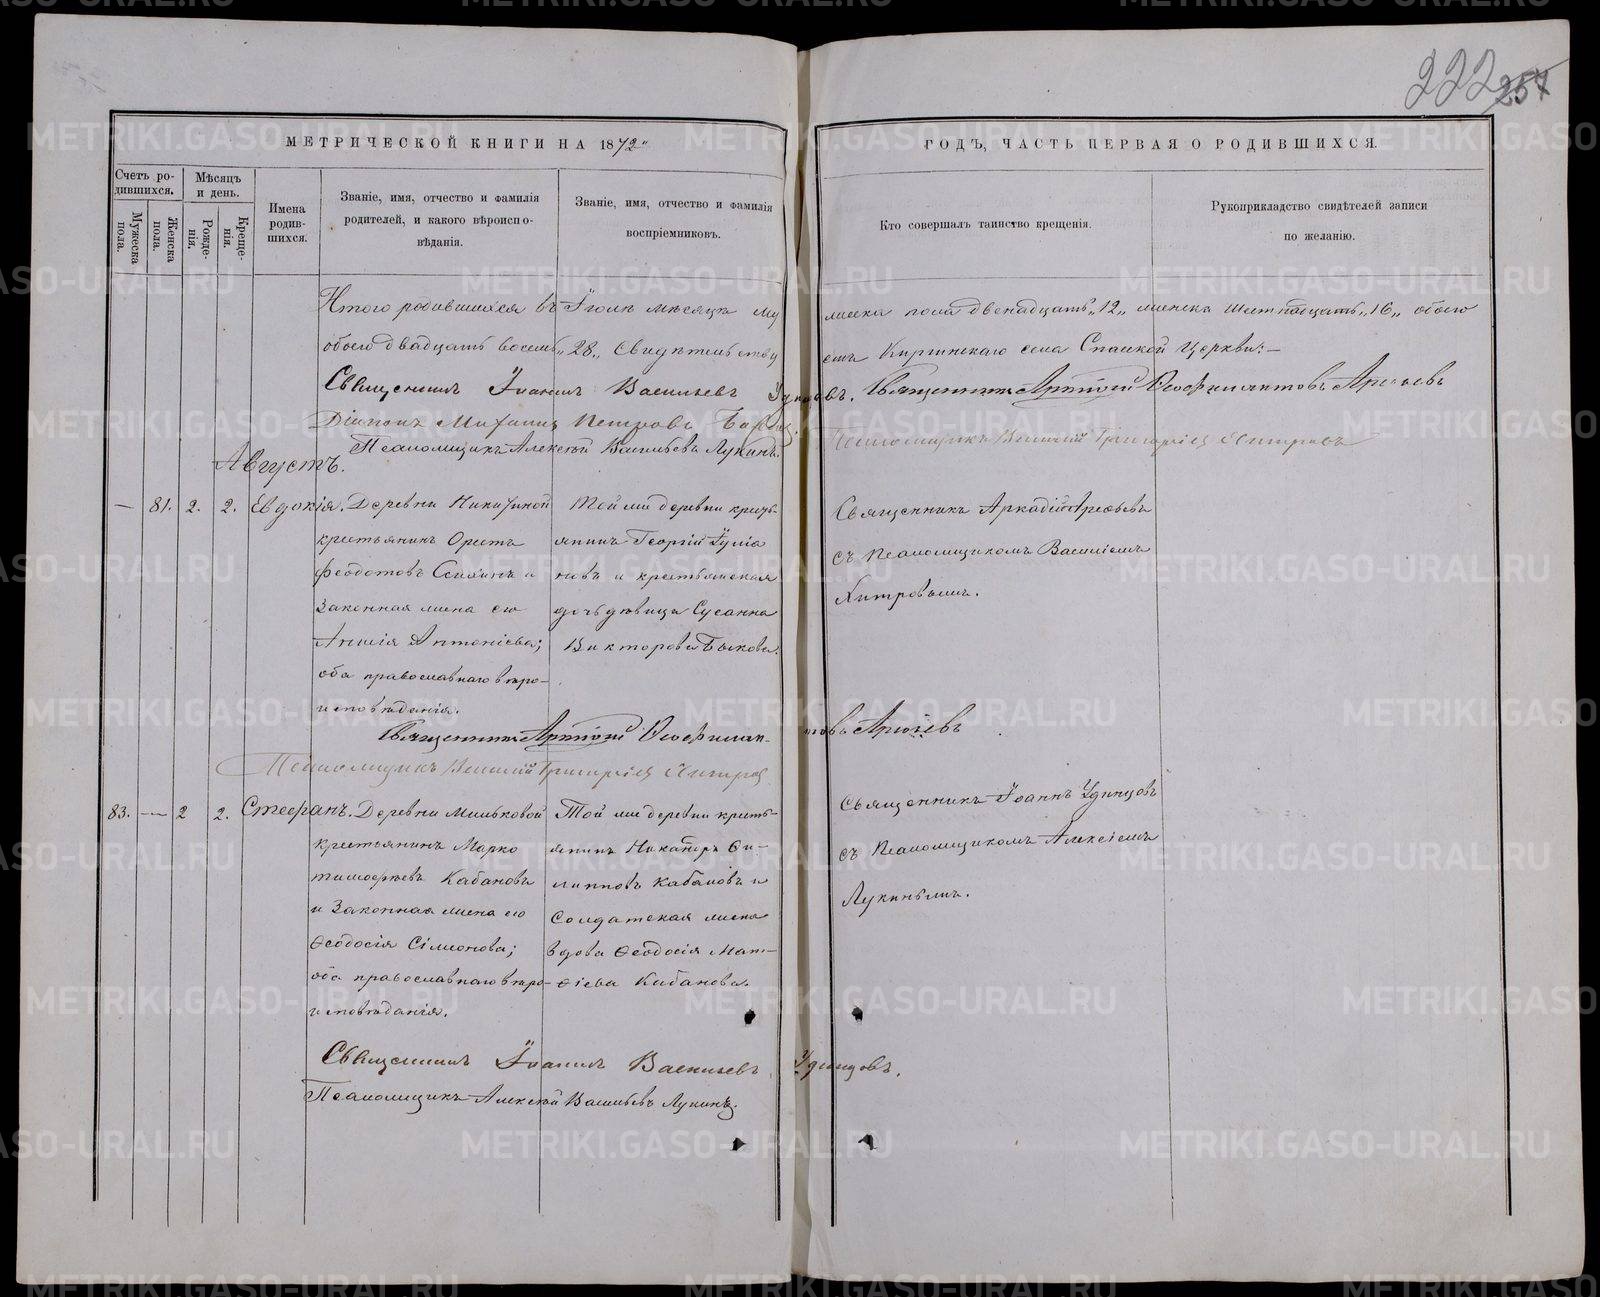 222 257
МЕТРИЧЕСКОЙ КНИГИ НА 1872
ГОДЪ, ЧАСТЬ ПЕРВАЯ О РОДИВШИХСЯ.
Счетъ ро-
дившихся.
Мѣсяцъ
и день.
Мужеска
пола.
Женска
пола.
Рожде-
нія.
Креще-
нія.
Имена
родив-
шихся.
Званіе, имя, отчество и фамилія
родителей, и какого вѣроиспо-
вѣданія.
Званіе, имя, отчество и фамилія
воспріемниковъ.
Кто совершалъ таинство крещенія.
Рукоприкладство свидѣтелей записи
по желанію.
Итого родившихся въ Іюлѣ мѣсяцѣ му жеска пола двенадцать „12„ женска шестнадцать „16„ обоего
обоего двадцать восемь „28„ Свидѣтельству емъ Киргинскаго села Спасской Церкви:—
Священникъ Іоаннъ Васильевъ Удинцовъ. Священникъ Ѳеофилактовъ
Діаконъ Михаилъ Петровъ
Псаломщикъ Алексѣй Васильевъ Лукинъ. Псаломщикъ Василій Григоріевъ Хитровъ
Августъ.
— 81. 2. 2. Евдокія. Деревни Никитиной
крестьянинъ Орестъ
Ѳеодотовъ и
Законная жена его
Антоніева;
оба православнаго вѣро-
исповѣданія.
Той же деревни кресть-
янинъ Георгій Іулiа
новъ и крестьянская
дочь дѣвица Сусанна
Викторова Быкова.
Священникъ Аркадій
съ Псаломщикомъ Василіемъ
Хитровымъ.
Священникъ Ѳеофилак- товъ
Псаломщикъ Василій Григоріевъ Хитровъ
83. — 2 2. Стефанъ. Деревни Мильковой
крестьянинъ Марко
тимофѣевъ Кабановъ
и Законная жена его
Ѳеодосія Сімеонова;
оба православнаго вѣро-
исповѣданія.
Той же деревни кресть-
янинъ Никаноръ Фи-
липповъ Кабановъ и
Солдатская жена
вдова Ѳеодосія Мат-
ѳіева Кабанова.
Священникъ Іоаннъ Удинцовъ
съ Псаломщикомъ Алексіемъ
Лукинымъ.
Священникъ Іоаннъ Васильевъ Удинцовъ.
Псаломщикъ Алексѣй Васильевъ Лукинъ.
METRIKI.GASO-URAL.RU